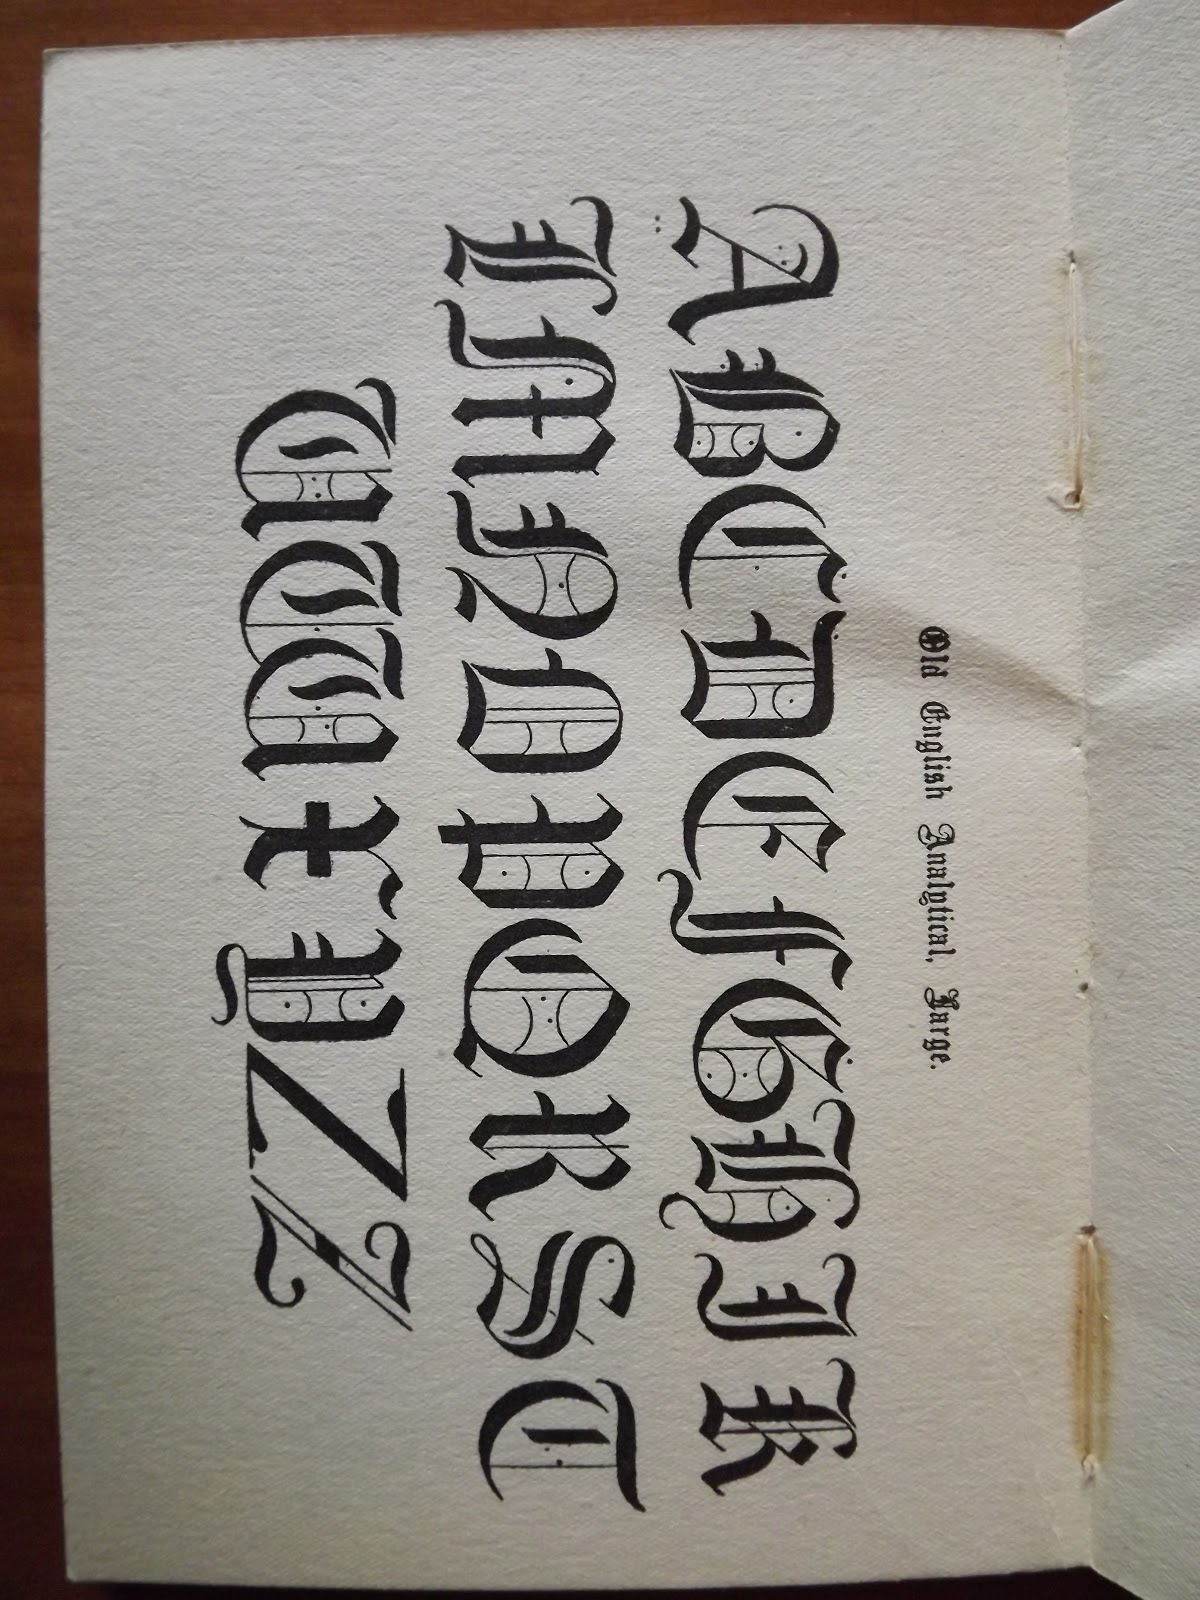 Old English Analytical, Large.
A B C D E F G H I K
L M N O P Q R S T
U W X Y Z Z